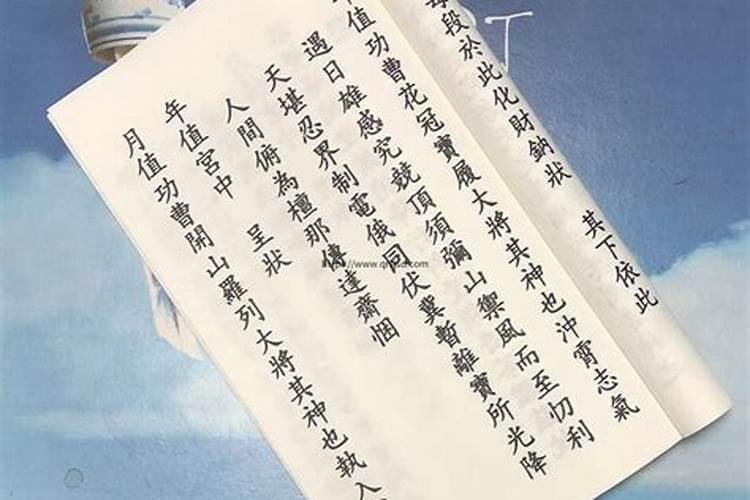 每段於此化財納狀 其下依此
年值功曹花冠寶履大將其神也沖霄志氣
遇日雄感究兢頂須彌山禦風而至忉利
天堪忍界制電俄同伏冀暫離寶所光降
人間俯為檀那傳達齋悃
年值宮中 呈狀
月值功曹開山羅列大將其神也執